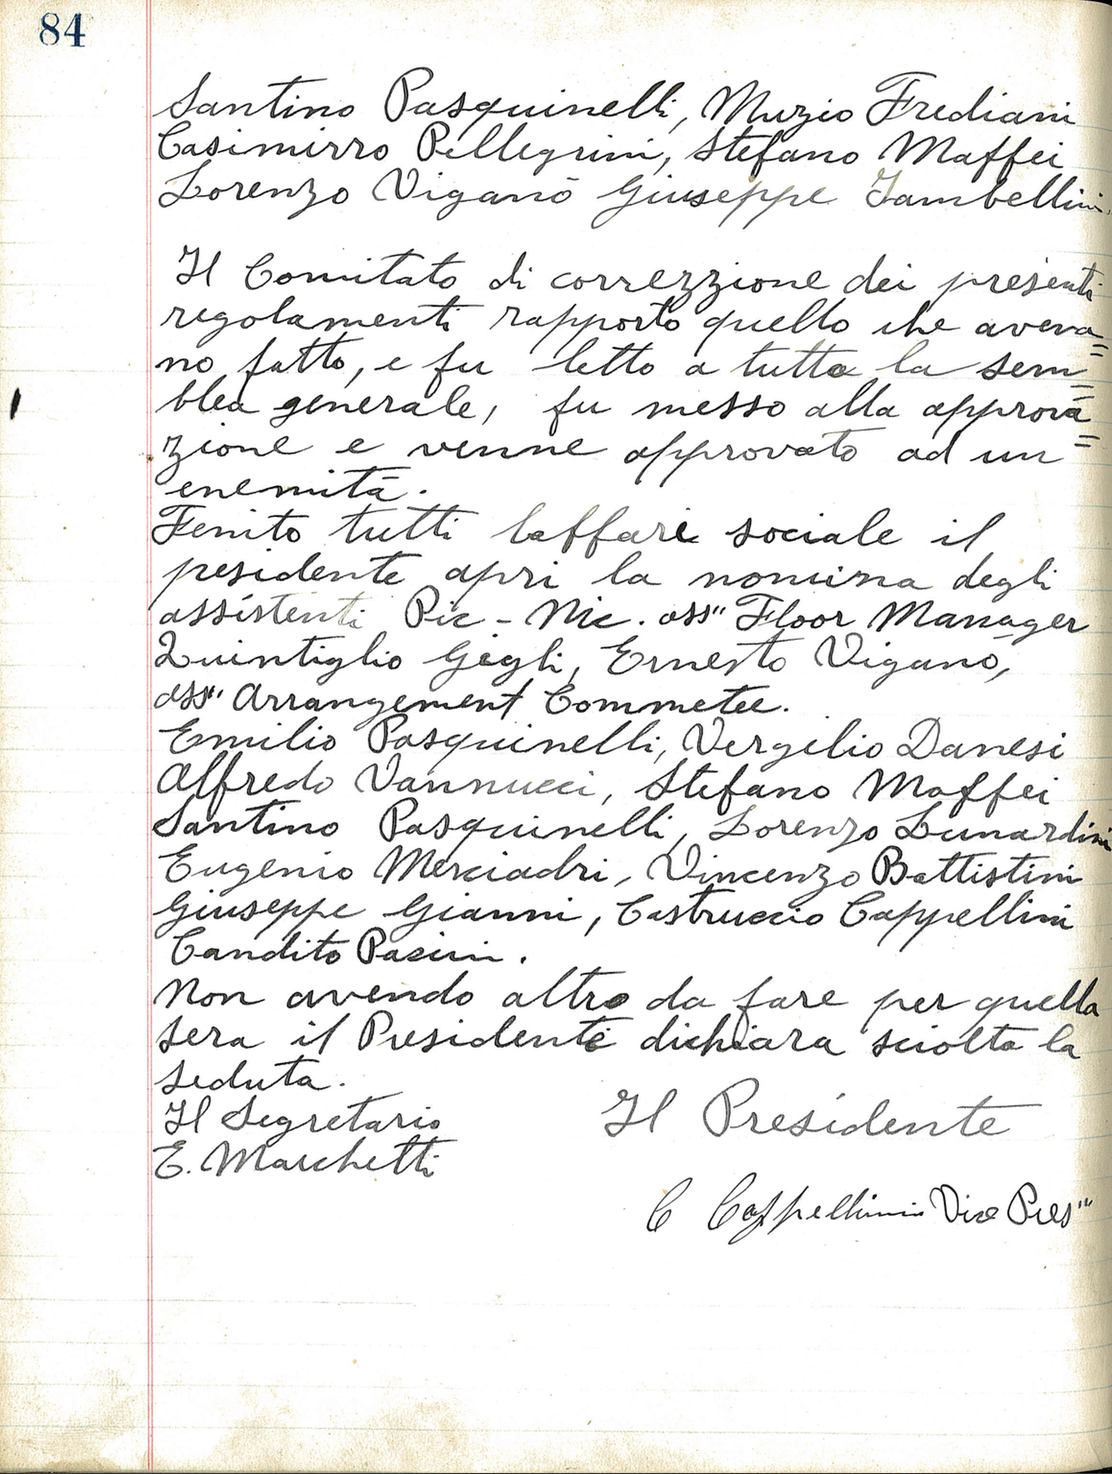 84
Santino Pasquinelli, Muzio Frediani
Casimirro Pellegrini, Stefano Maffei
Lorenzo Viganò Giuseppe Tambellini.
Il Comitato di correzzione dei presenti
regolamenti rapporto quello che aveva=
no fatto, e fu letto a tutta la sem=
blea generale, fu messo alla approva=
zione e venne approvato ad un=
enemità.
Fenito tutti laffare sociale il
pesidente apri la nomina degli
assistenti Pic-Nic. ass" Floor Manager
Quintiglio Gegli, Ernesto Viganò,
ass" Arrangement Commetee.
Emilio Pasquinelli, Vergilio Danesi
Alfredo Vannucci, Stefano Maffei
Santino Pasquinelli, Lorenzo Lunardini
Eugenio Merciadri, Vincenzo Battistini
Giuseppe Gianni, Castruccio Cappellini
Candito Pacini.
Non avendo altro da fare per quella
sera il Presidente dichiara sciolta la
seduta.
Il Segretario
E. Marchetti
Il Presidente
C Cappellini Vice Pres"